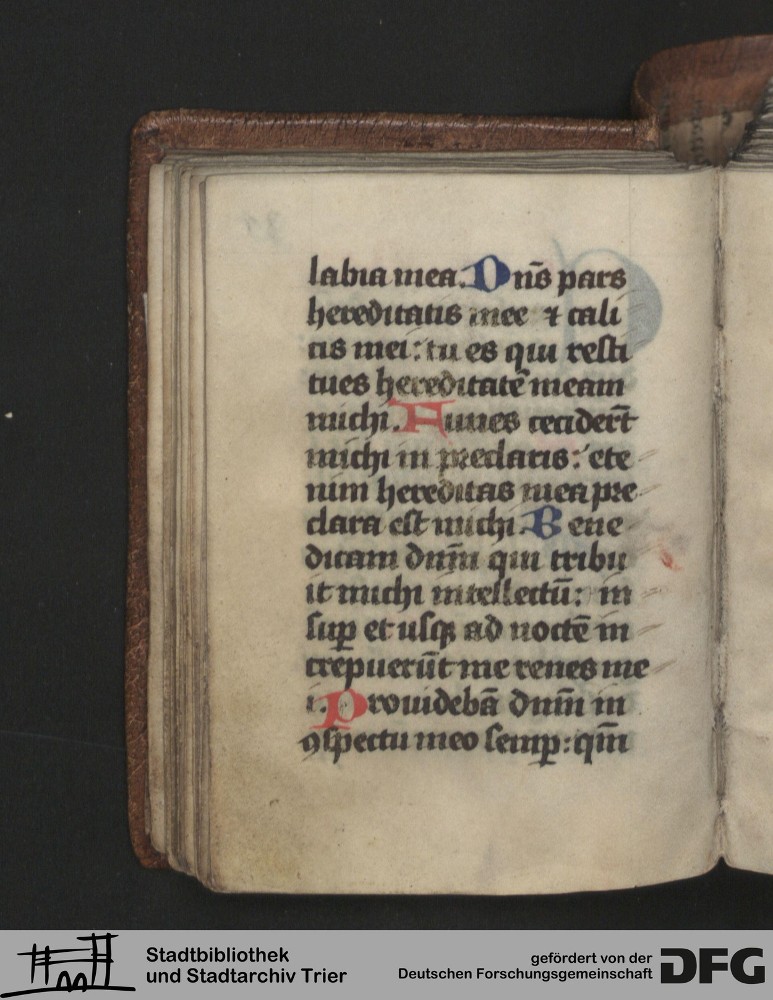 labia mea. Dn̄s pars
hereditatis mee ⁊ cali
cis mei: tu es qui resti
tues hereditatē meam
michi. Funes cecider̄t
michi in preclaris: ete
nim hereditas mea pre
clara est michi. Bene
dicam dn̄m qui tribu
it michi intellectū: in
suꝑ et usqꝫ ad noctē in
crepuerūt me renes me
i. Prouidebā dn̄m in
ꝯspectu meo semꝑ: qm̄
Stadtbibliothek
und Stadtarchiv Trier
gefördert von der
Deutschen Forschungsgemeinschaft
DFG